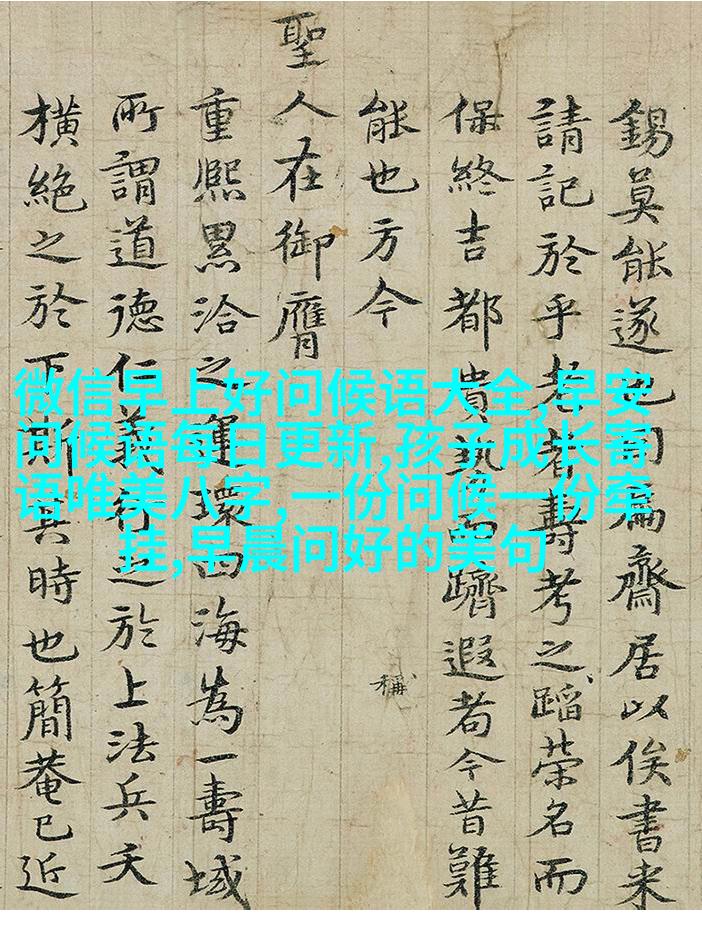 微信早上好问候语大全,早安
问候语每日更新,孩子成长寄
语唯美八字,一份问候一份牵
挂,早晨问好的美句
錫莫能遂也扁齋居以俟書来
請記於乎老者壽考之蹈榮名而
保終吉都貴而躋遐耇今昔難
能也方今稱
聖人在御膺
重熈累洽之運環四海為一壽域
所謂道德仁義行之於上法兵夭
横絶之於下斯其時也簡菴已近